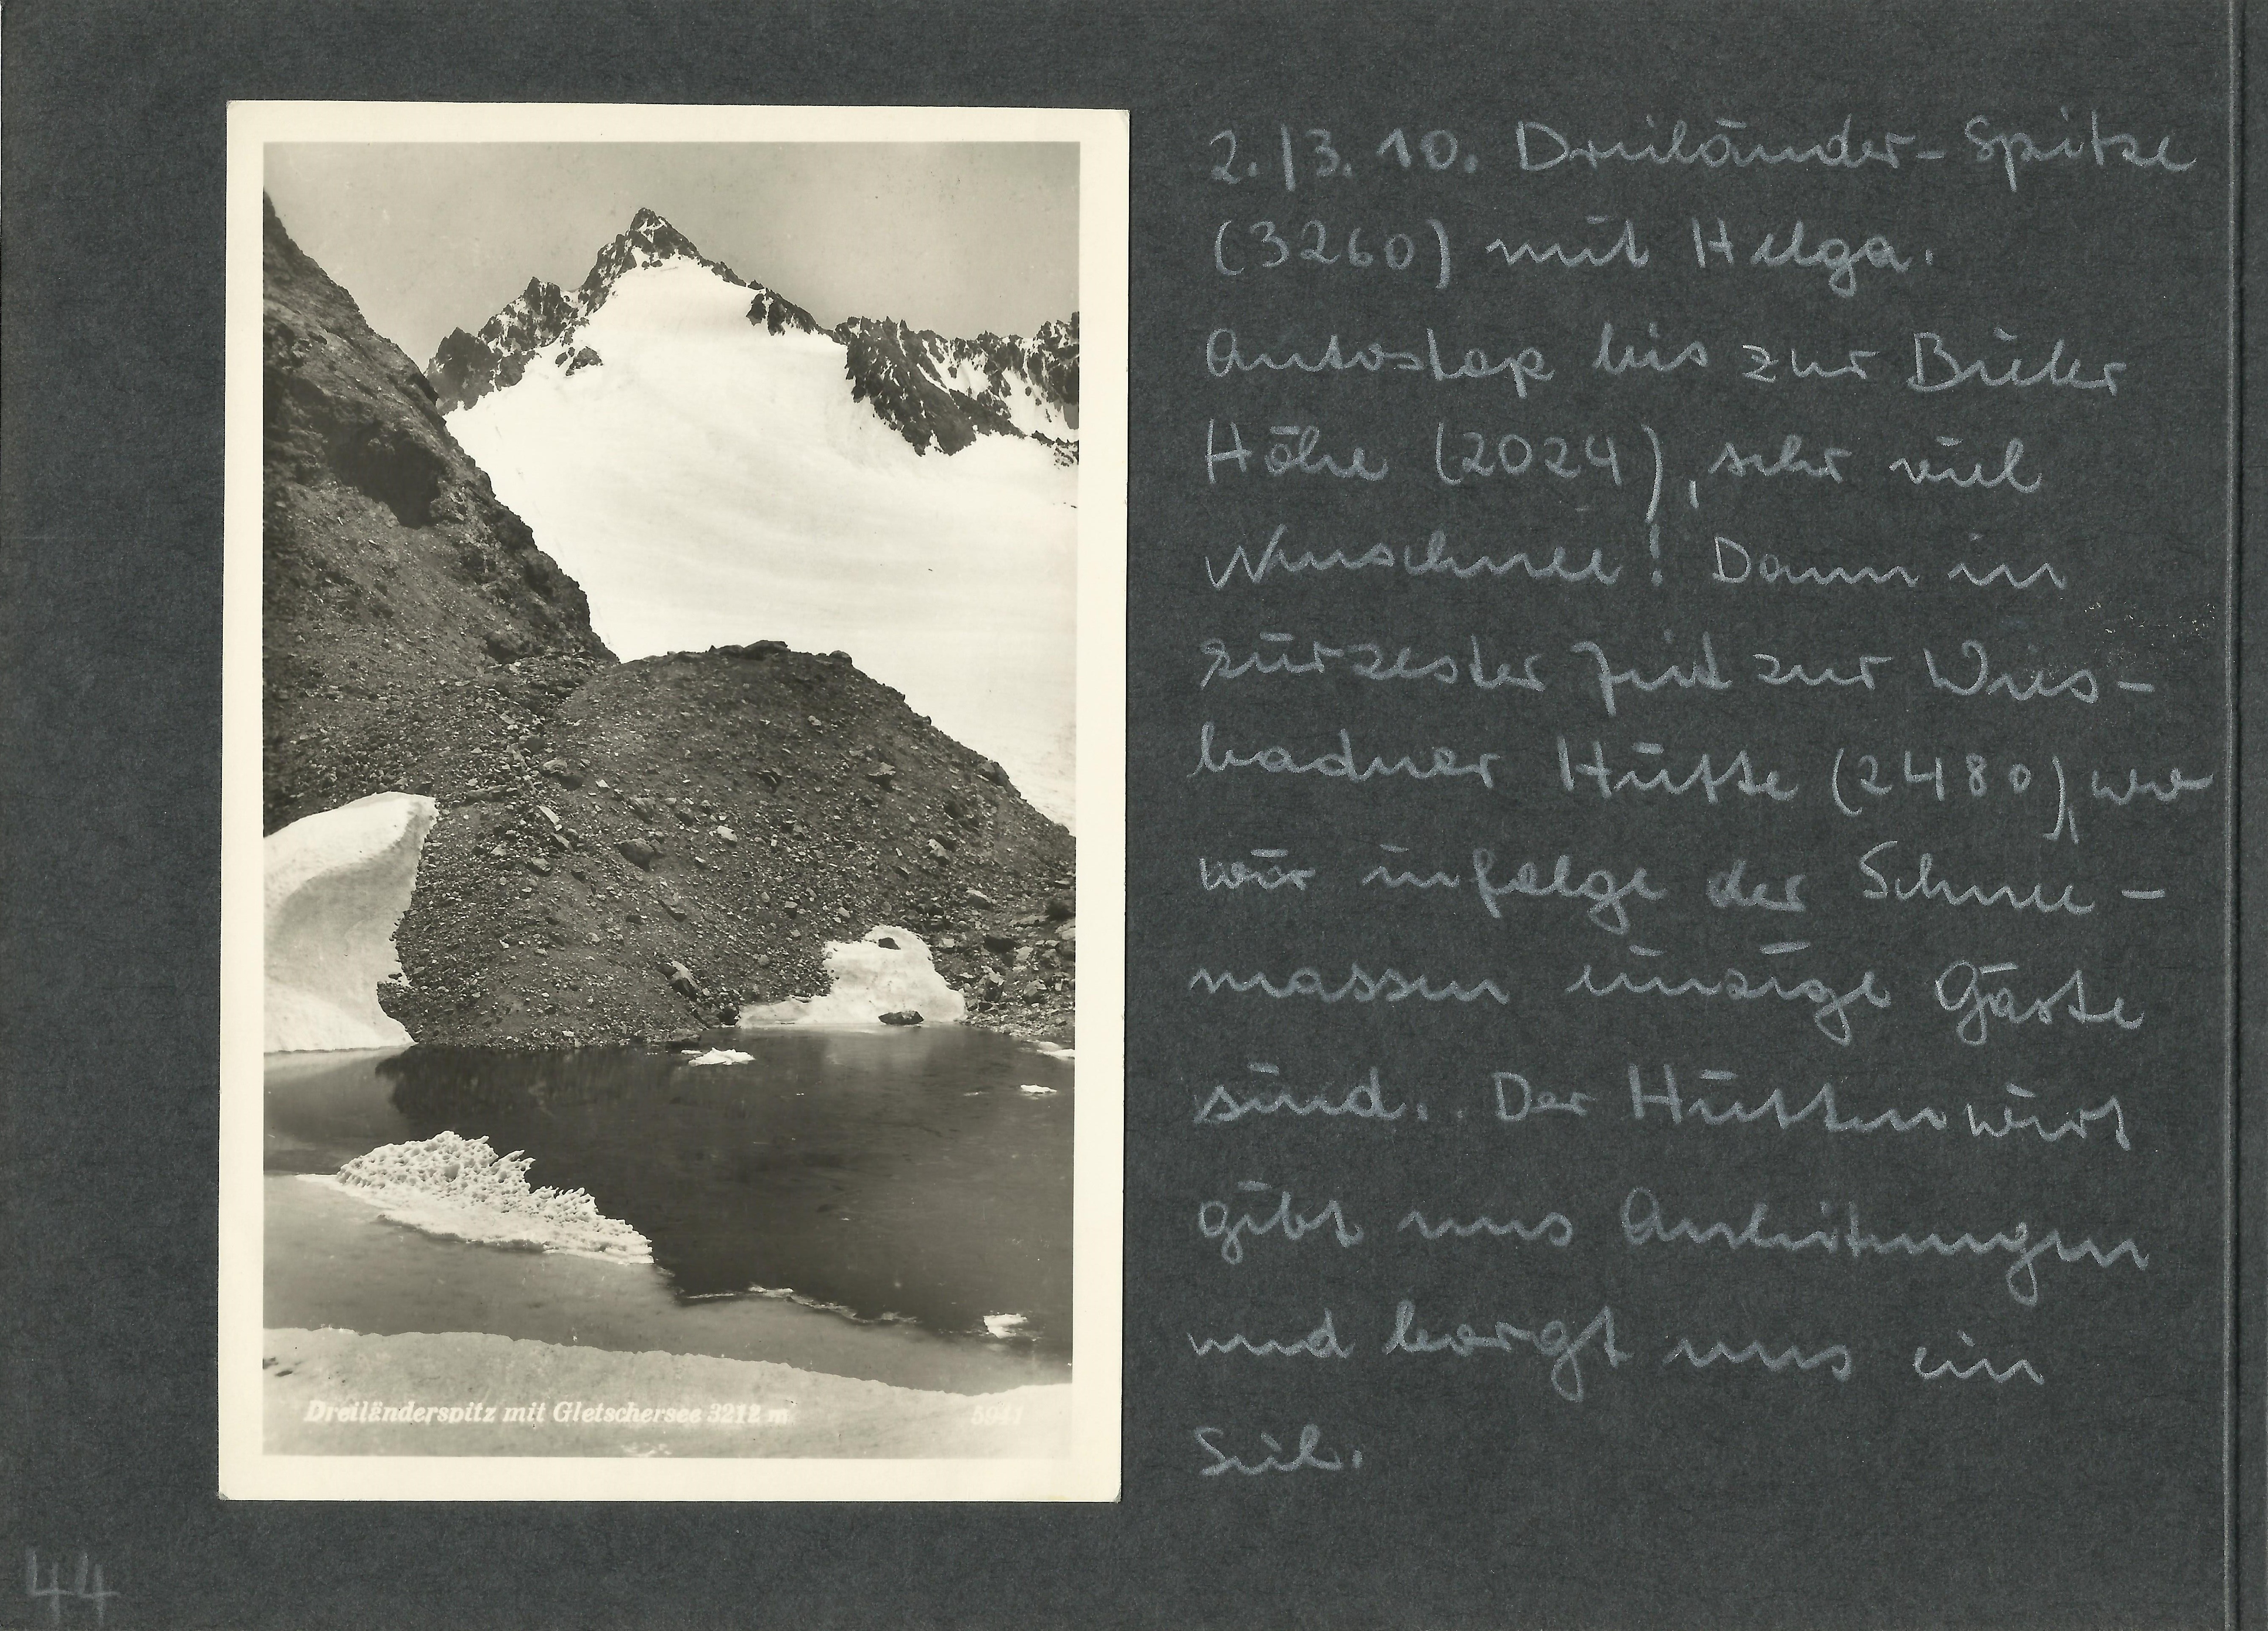 Dreiländerspitz mit Gletschersee 3212 m 5941
2./3. 10. Dreiländer-Spitze
(3260) mit Helga.
Autostop bis zur Bieler
Höhe (2024), sehr viel
Neuschnee! Dann in
kürzester Zeit zur Wies-
badner Hütte (2480), wo
wir infolge der Schnee-
massen einzige Gäste
sind. Der Hüttenwirt
gibt uns Anleitungen
und borgt uns ein
Seil.
44